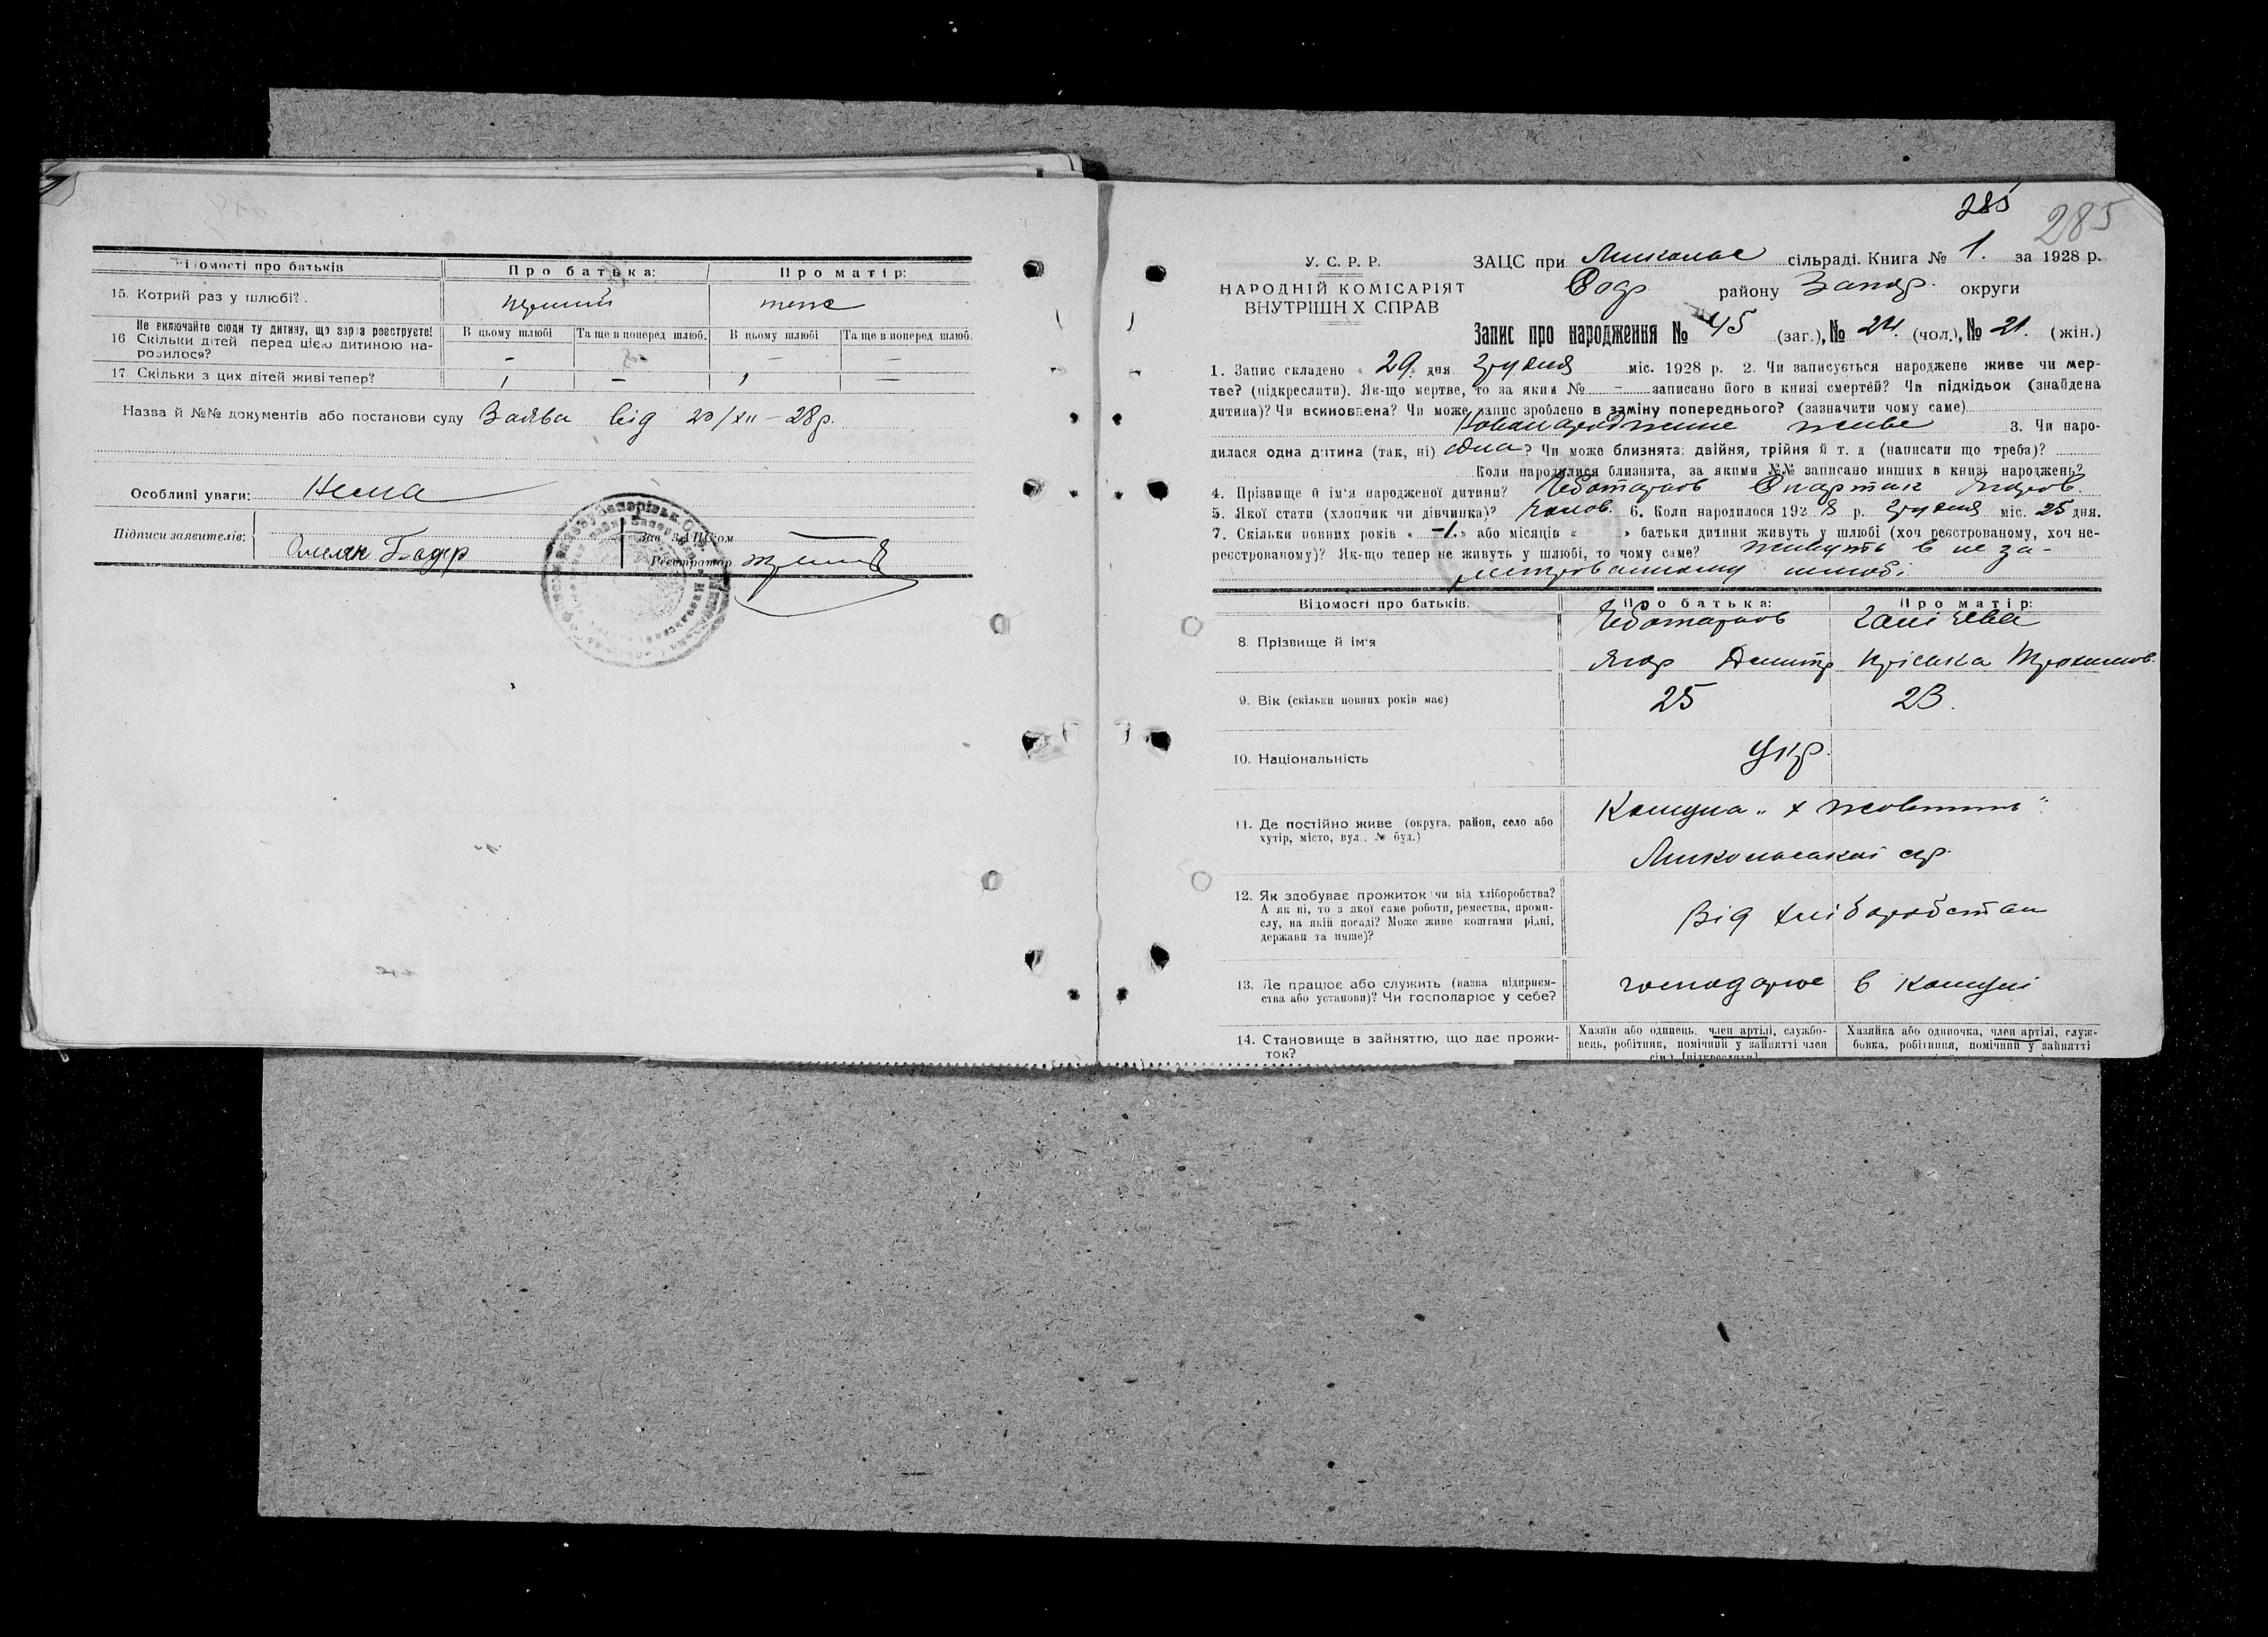 Відомості про батьків
Про батька:
Про матір:
15. Котрий раз у шлюбі?
перший
теж
Не включайте сюди ту дитину, що зараз реєструєте!
16 Скільки дітей перед цією дитиною на-
родилося?
В цьому шлюбі
Та ще в поперед шлюб.
В цьому шлюбі
Та ще в поперед шлюб.
–
–
–
17. Скільки з цих дітей живі тепер?
–
–
Назва й №№ документів або постанови суду Заява від 29/XII – 28 р.
Особливі уваги: Нема
Підписи заявителів:
Зав. ЗАЦСом
Реєстратор
285
285
У. С. Р. Р.
НАРОДНІЙ КОМІСАРІЯТ
ВНУТРІШН Х СПРАВ
ЗАЦС при сільраді. Книга № 1. за 1928 р.
району Запор. округи
Запис про народження № 45 (заг.), № 24. (чол.), № 21. (жін.)
1. Запис складено « 29 » дня грудня міс. 1928 р. 2. Чи записується народжене живе чи мер-
тве? (підкреслити). Як-що мертве, то за яким № – записано його в книзі смертей? Чи підкідьок (знайдена
дитина)? Чи всиновлена? Чи може запис зроблено в заміну попереднього? (зазначити чому саме)
живе 3. Чи наро-
дилася одна дитина (так, ні) одна? Чи може близнята: двійня, трійня й т. д (написати що треба)?
Коли народилися близнята, за якими №№ записано инших в книзі народжень?
4. Прізвище й ім'я народженої дитини? Чеботарьов Спартак Ягоров.
5. Якої стати (хлопчик чи дівчинка)? чолов. 6. Коли народилося 192 8 р. грудня міс. 25 дня.
7. Скільки повних років « –1. » або місяців « » батьки дитини живуть у шлюбі (хоч реєстрованому, хоч не-
реєстрованому)? Як-що тепер не живуть у шлюбі, то чому саме? живуть в не за-
шлюбі.
Відомості про батьків.
Про батька:
Про матір:
8. Прізвище й ім'я
Чеботарьов
Ягор Дмитр
9. Вік (скільки повних років має)
25
23.
10. Національність
Укр.
11. Де постійно живе (округа, район, село або
хутір, місто, вул., № буд.)
Комуна „ х жовтень"
12. Як здобуває прожиток чи від хліборобства?
А як ні, то з якої саме роботи, ремества, проми-
слу, на якій посаді? Може живе коштами рідні,
держави та инше)?
Від хліборобства
13. Де працює або служить (назва підприєм-
ства або установи)? Чи господарює у себе?
господарює в комуні
14. Становище в зайняттю, що дає прожи-
ток?
Хазяїн або одинець, член артілі, службо-
вець, робітник, помічний у зайнятті член
сім'ї (підкреслити)
Хазяйка або одиночка, член артілі, служ-
бовка, робітниця, помічний у зайнятті